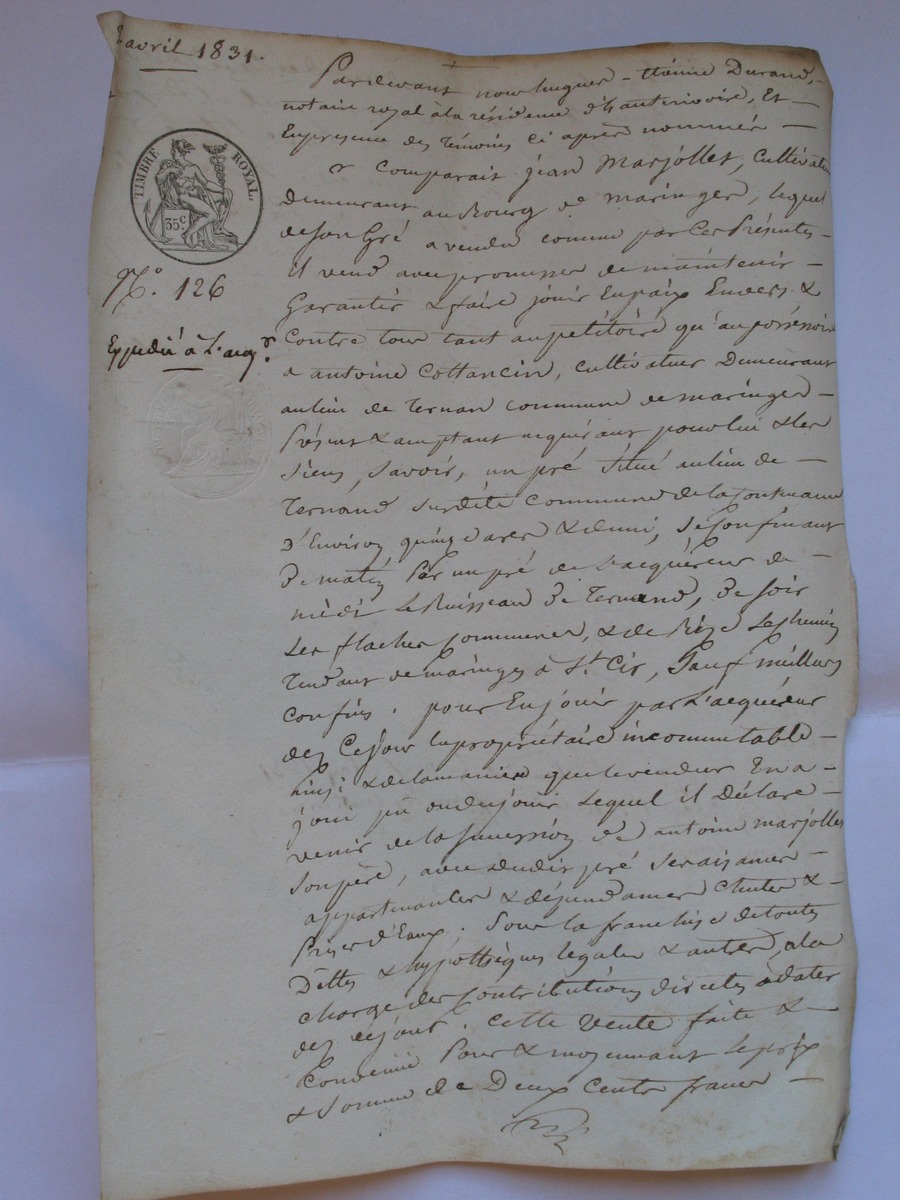 avril 1831.
TIMBRE ROYAL.
35c
N.° 126
Expédié à l'acq.r
Pardevant nous hugues-Etienne Durand,
notaire royal à la résidence d'hauterivoire, Et
En presence des témoins ci après nommés
comparait jean Marjollet, Cultivateur
demeurant au Bourg de maringes, lequel
de son Gré a vendu comme par Ces Présentes
il vend avec promesse de maintenir
Garantir & faire jouir En paix Envers &
Contre tous tant au pétitoire qu'au possessoire
a antoine Cottancin, Cultivateur Demeurant
au lieu de Ternand commune de maringes
Présent & acceptant acquérant pour lui & les
siens, Savoir, un pré situé au lieu de
Ternand Sur dite commune de la Contenance
d'Environ quinze ares & demi, se confinant
de matin Par un pré de l'acquéreur de
midi le Ruisseau de Ternand, de soir
Les flaches communes, & de bize Le chemin
Tendant de maringes à St. Cir, Sauf meilleurs
confins. pour En jouir par L'acquéreur
dez Ce jour En propriétaire incommutable
ainsi & de la maniere que le vendeur En a
joui pu ou du jouir Lequel il Déclare
venir de la Succession de antoine marjollet
son père, avec dudit pré Ses aisances
appartenances & dépendances chutes &
Prises d'Eaux. Sous la franchise de toutes
Dettes & hypothèques légales & autres, a la
charge des Contributions directes à dater
dez ce jour. Cette Vente faite &
Convenue Pour & moyennant Le prix
& Somme de Deux Cents francs